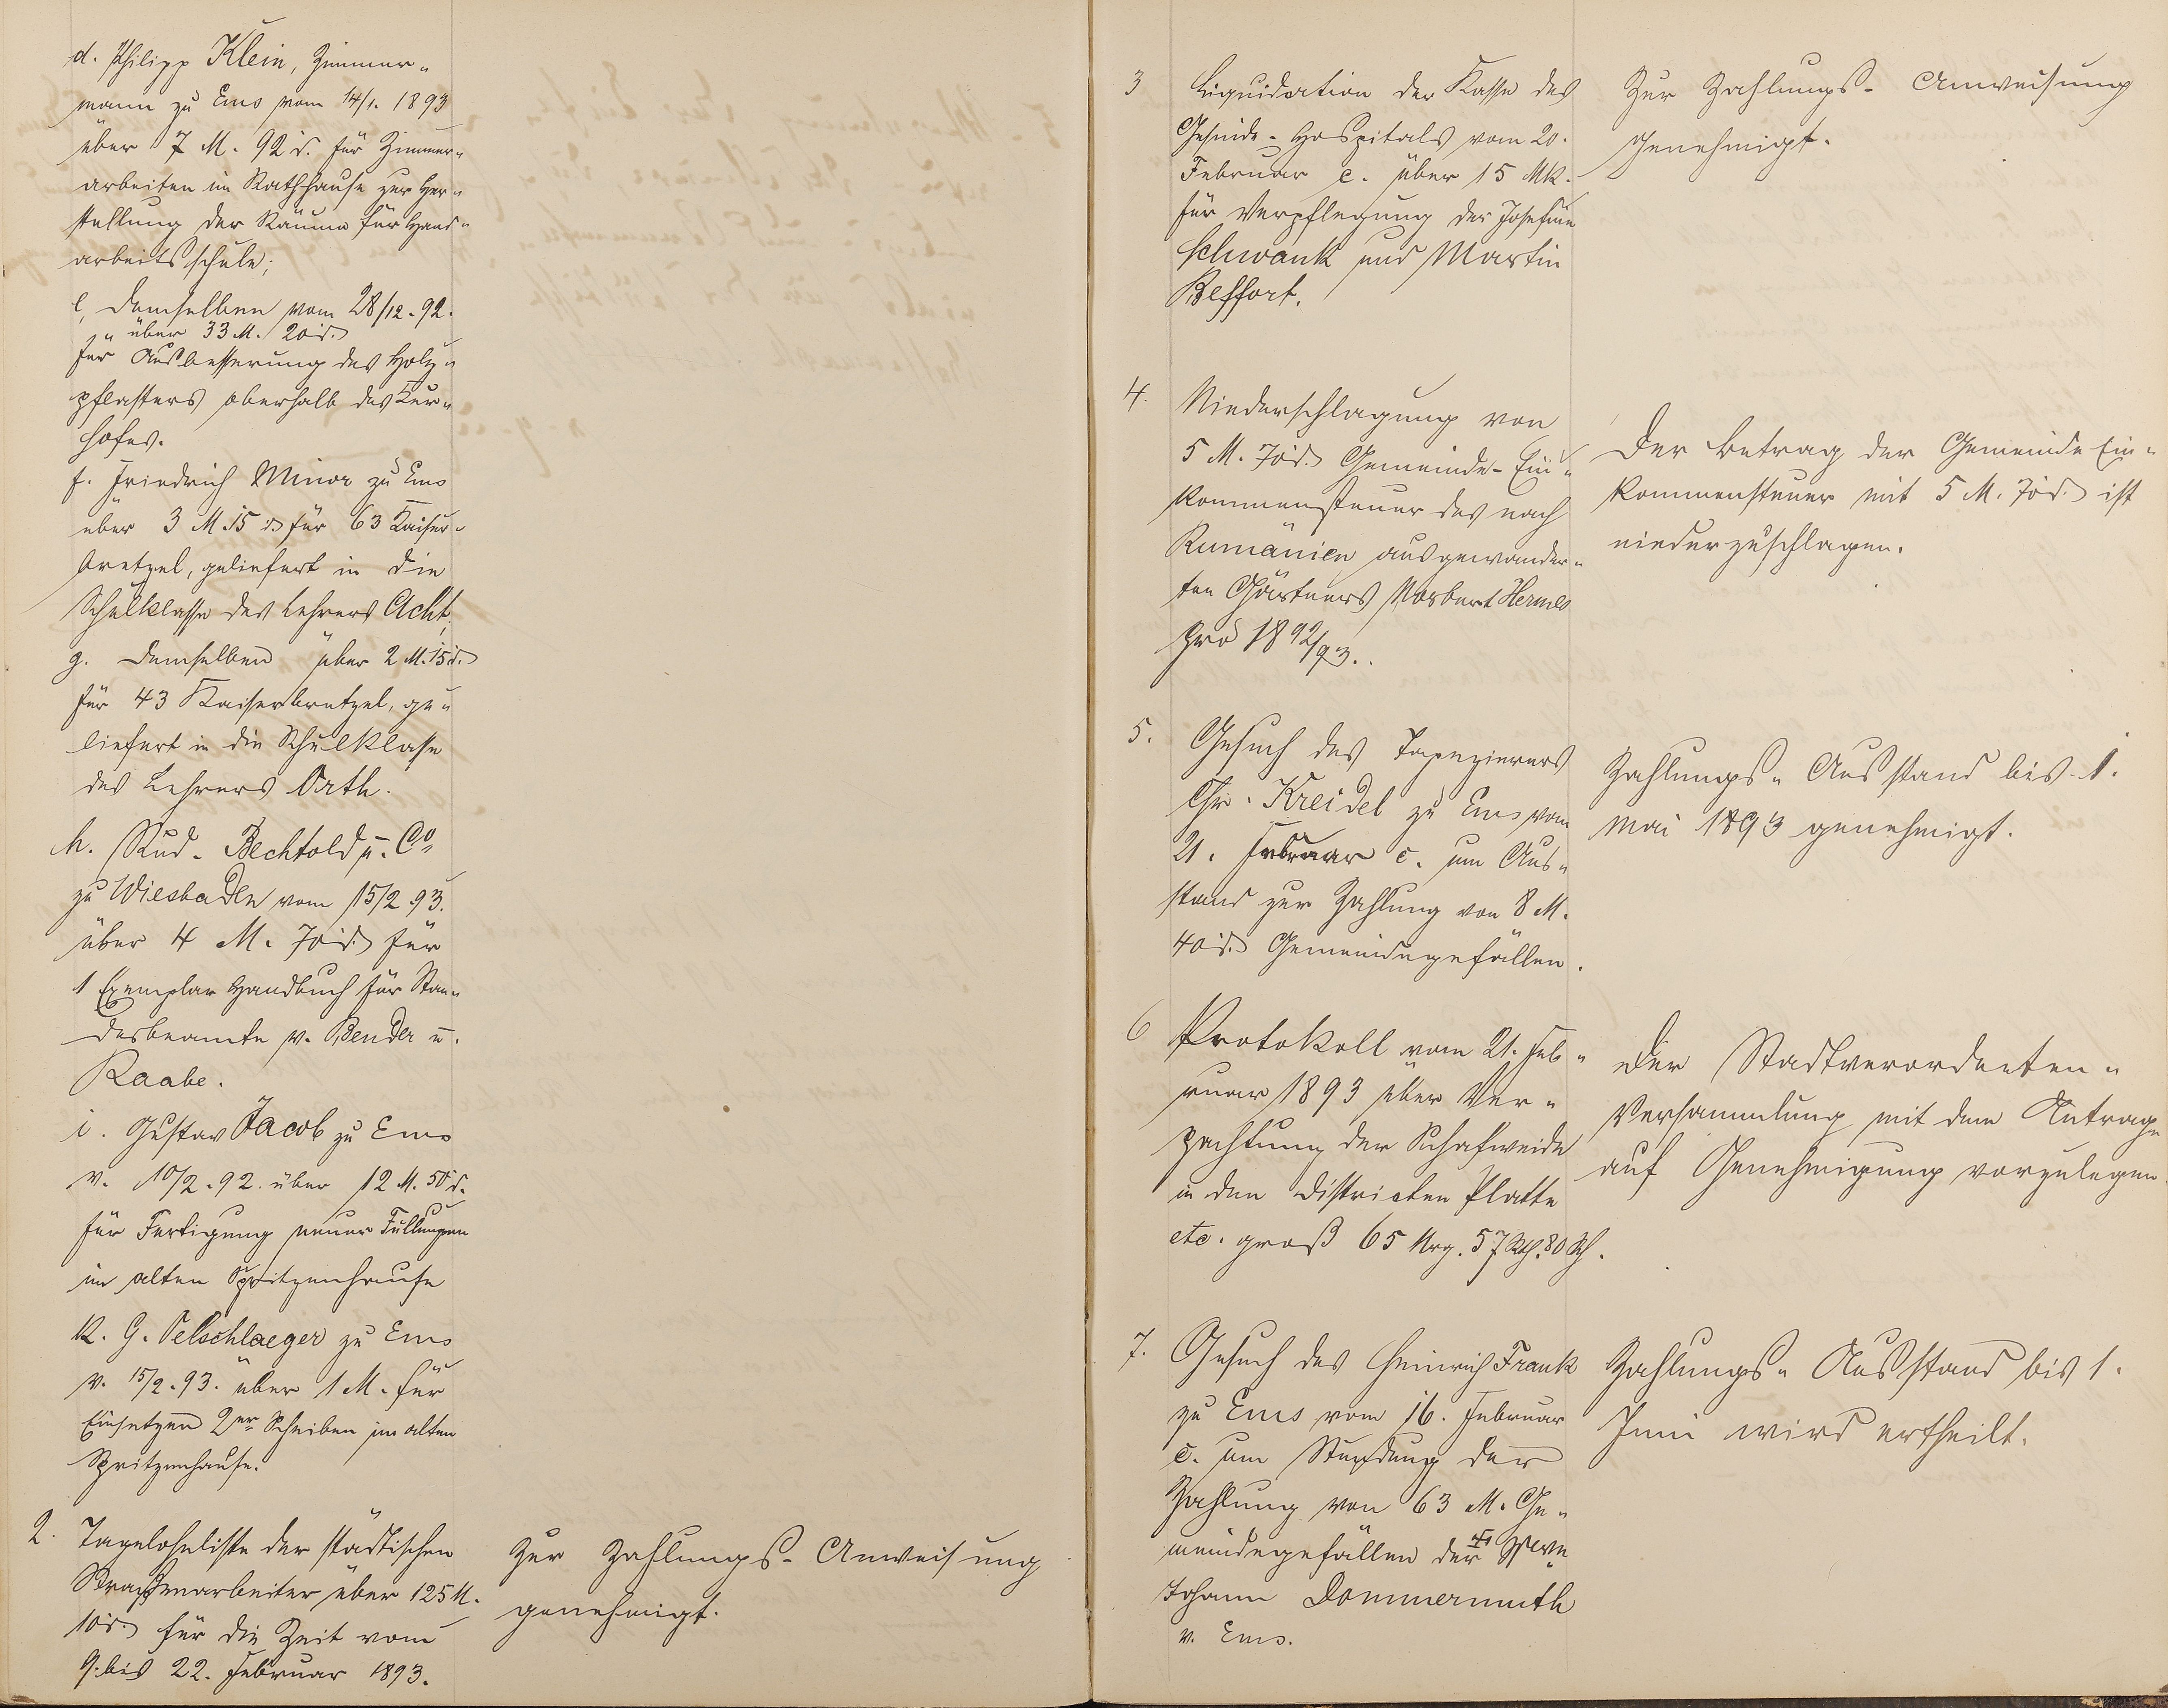 d. Philipp Klein, Zimmer-
mann zu Ems vom 14/1. 1893
über 7 M. 92 d. für Zimmer-
arbeiten im Rathhause zur Her-
stellung der Räume für Hand-
arbeitsschule;
e, demselben vom 28/12. 92.
über 33 M. 20 d.
für Ausbesserung des Holz-
pflasters oberhalb des Kur-
hofes.
f. Friedrich Minor zu Ems
über 3 M. 15 d für 63 Kaiser-
bretzel, geliefert in die
Schulklasse des Lehrers Acht;
g. demselben über 2 M. 15 d.
für 43 Kaiserbretzel, ge-
liefert in die Schulklasse
des Lehrers Orth.
h. Rud. Bechtold u. Co
zu Wiesbaden vom 15/2 93.
über 4 M. 70 d. für
1 Exemplar Handbuch für Stan-
desbeamte v. Bender u.
Raabe.
i. Gustav Jacob zu Ems
v. 10/2. 92. über 12 M. 50 d.
für Fertigung neuer Füllungen
im alten Spritzenhause
k. G. Oelschlaeger zu Ems
v. 15/2. 93. über 1 M. für
Einsetzen 2er Scheiben im alten
Spritzenhause.
2. Tagelohnliste der städtischen
Straßenarbeiter über 125 M.
10 d. für die Zeit vom
9. bis 22. Februar 1893.
Zur Zahlungs-Anweisung
genehmigt.
3 Liquidation der Kasse des
Gesinde-Hospitals vom 20.
Februar c. über 15 Mk.
für Verpflegung der Josefine
Schwank und Martin
Beffort.
Zur Zahlungs-Anweisung
genehmigt.
4. Niederschlagung von
5 M. 70 d. Gemeinde-Ein-
kommensteuer des nach
Rumänien ausgewander-
ten Gärtners Norbert Hermes
pro 1892/93.
Der Betrag der Gemeinde Ein-
kommensteuer mit 5 M. 70 d. ist
niederzuschlagen.
5. Gesuch des Tapezierers
Chr. Kreidel zu Ems vom
21. Februar c. um Aus-
stand zur Zahlung von 8 M.
40 d. Gemeindegefällen.
Zahlungs-Ausstand bis 1.
Mai 1893 genehmigt.
6 Protokoll vom 21. Feb-
ruar 1893 über Ver-
pachtung der Schafweide
in den Districten Platte
etc. groß 65 Mrg. 57 Rth. 80 Sch.
Der Stadtverordneten-
Versammlung mit dem Antrage
auf Genehmigung vorzulegen.
7. Gesuch des Heinrich Frank
zu Ems vom 16. Februar
c. um Stundung der
Zahlung von 63 M. Ge-
meindegefällen der Wwe
Johann Dommermuth
v. Ems.
Zahlungs-Ausstand bis 1.
Juni wird ertheilt.